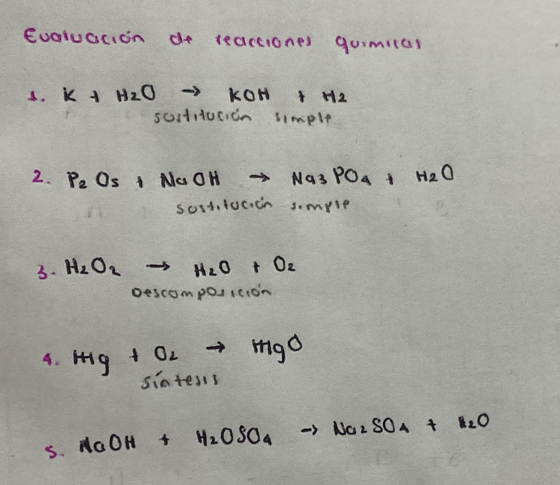 Evaluación de reacciones químicas
1. K + H2O → KOH + H2
sustitución simple
2. P2O5 + NaOH → Na3PO4 + H2O
sustitución simple
3. H2O2 → H2O + O2
Descomposición
4. Mg + O2 → MgO
síntesis
5. NaOH + H2OSO4 → Na2SO4 + H2O